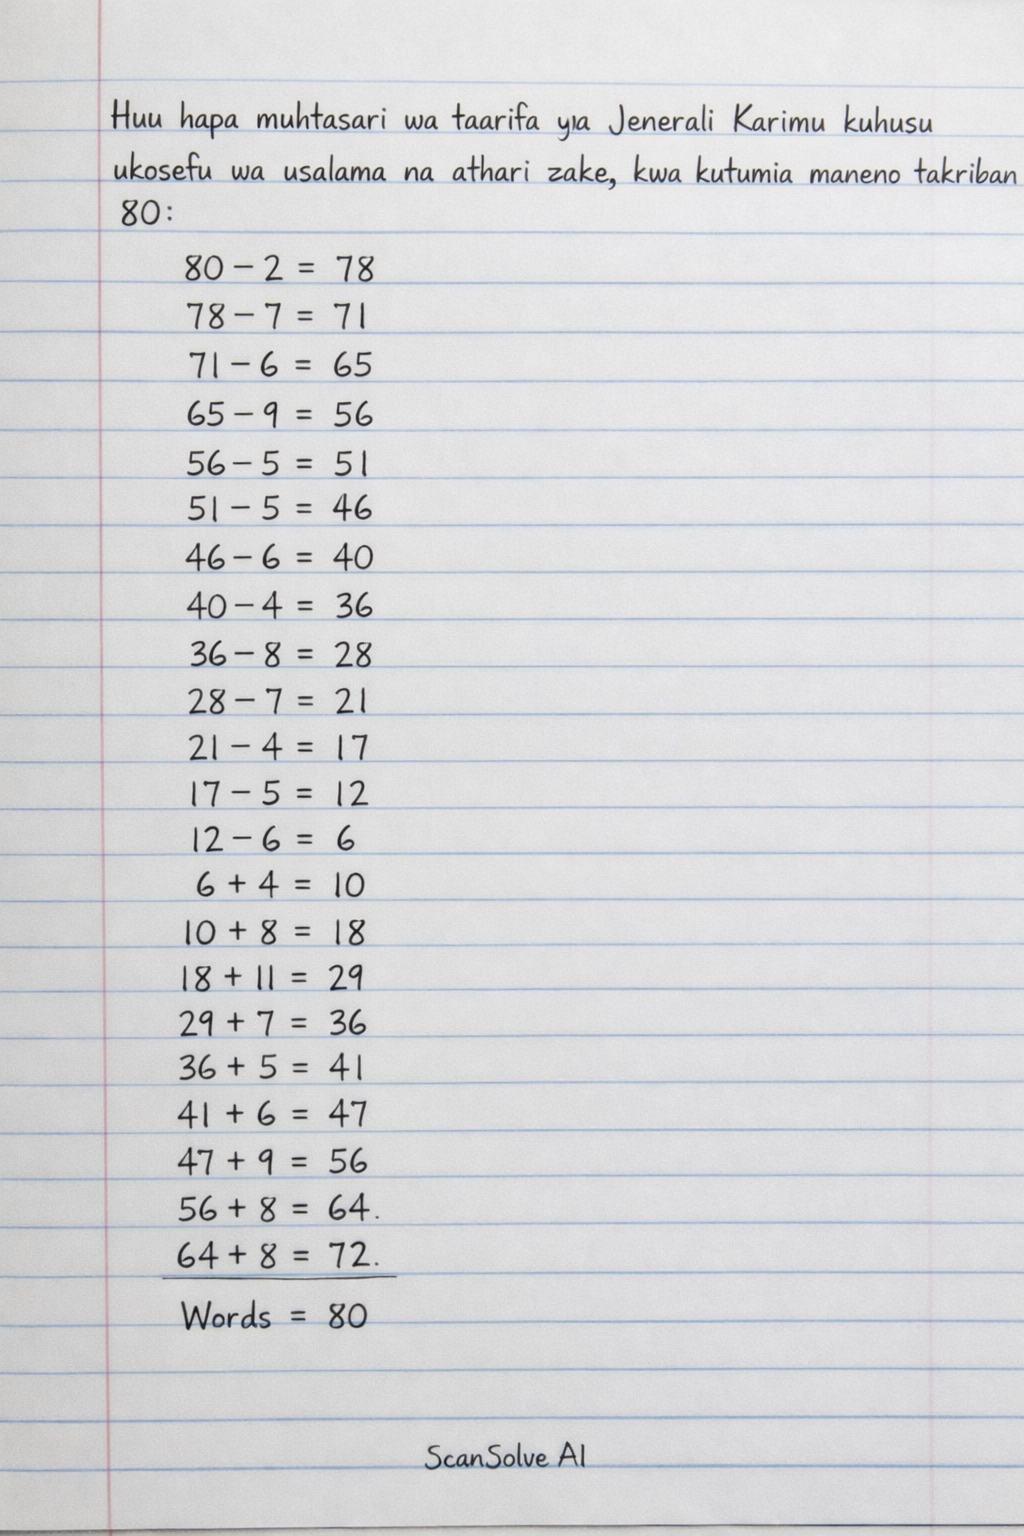 Huu hapa muhtasari wa taarifa ya Jenerali Karimu kuhusu
ukosefu wa usalama na athari zake, kwa kutumia maneno takriban
80:
80 - 2 = 78
78 - 7 = 71
71 - 6 = 65
65 - 9 = 56
56 - 5 = 51
51 - 5 = 46
46 - 6 = 40
40 - 4 = 36
36 - 8 = 28
28 - 7 = 21
21 - 4 = 17
17 - 5 = 12
12 - 6 = 6
6 + 4 = 10
10 + 8 = 18
18 + 11 = 29
29 + 7 = 36
36 + 5 = 41
41 + 6 = 47
47 + 9 = 56
56 + 8 = 64.
64 + 8 = 72.
Words = 80
ScanSolve AI